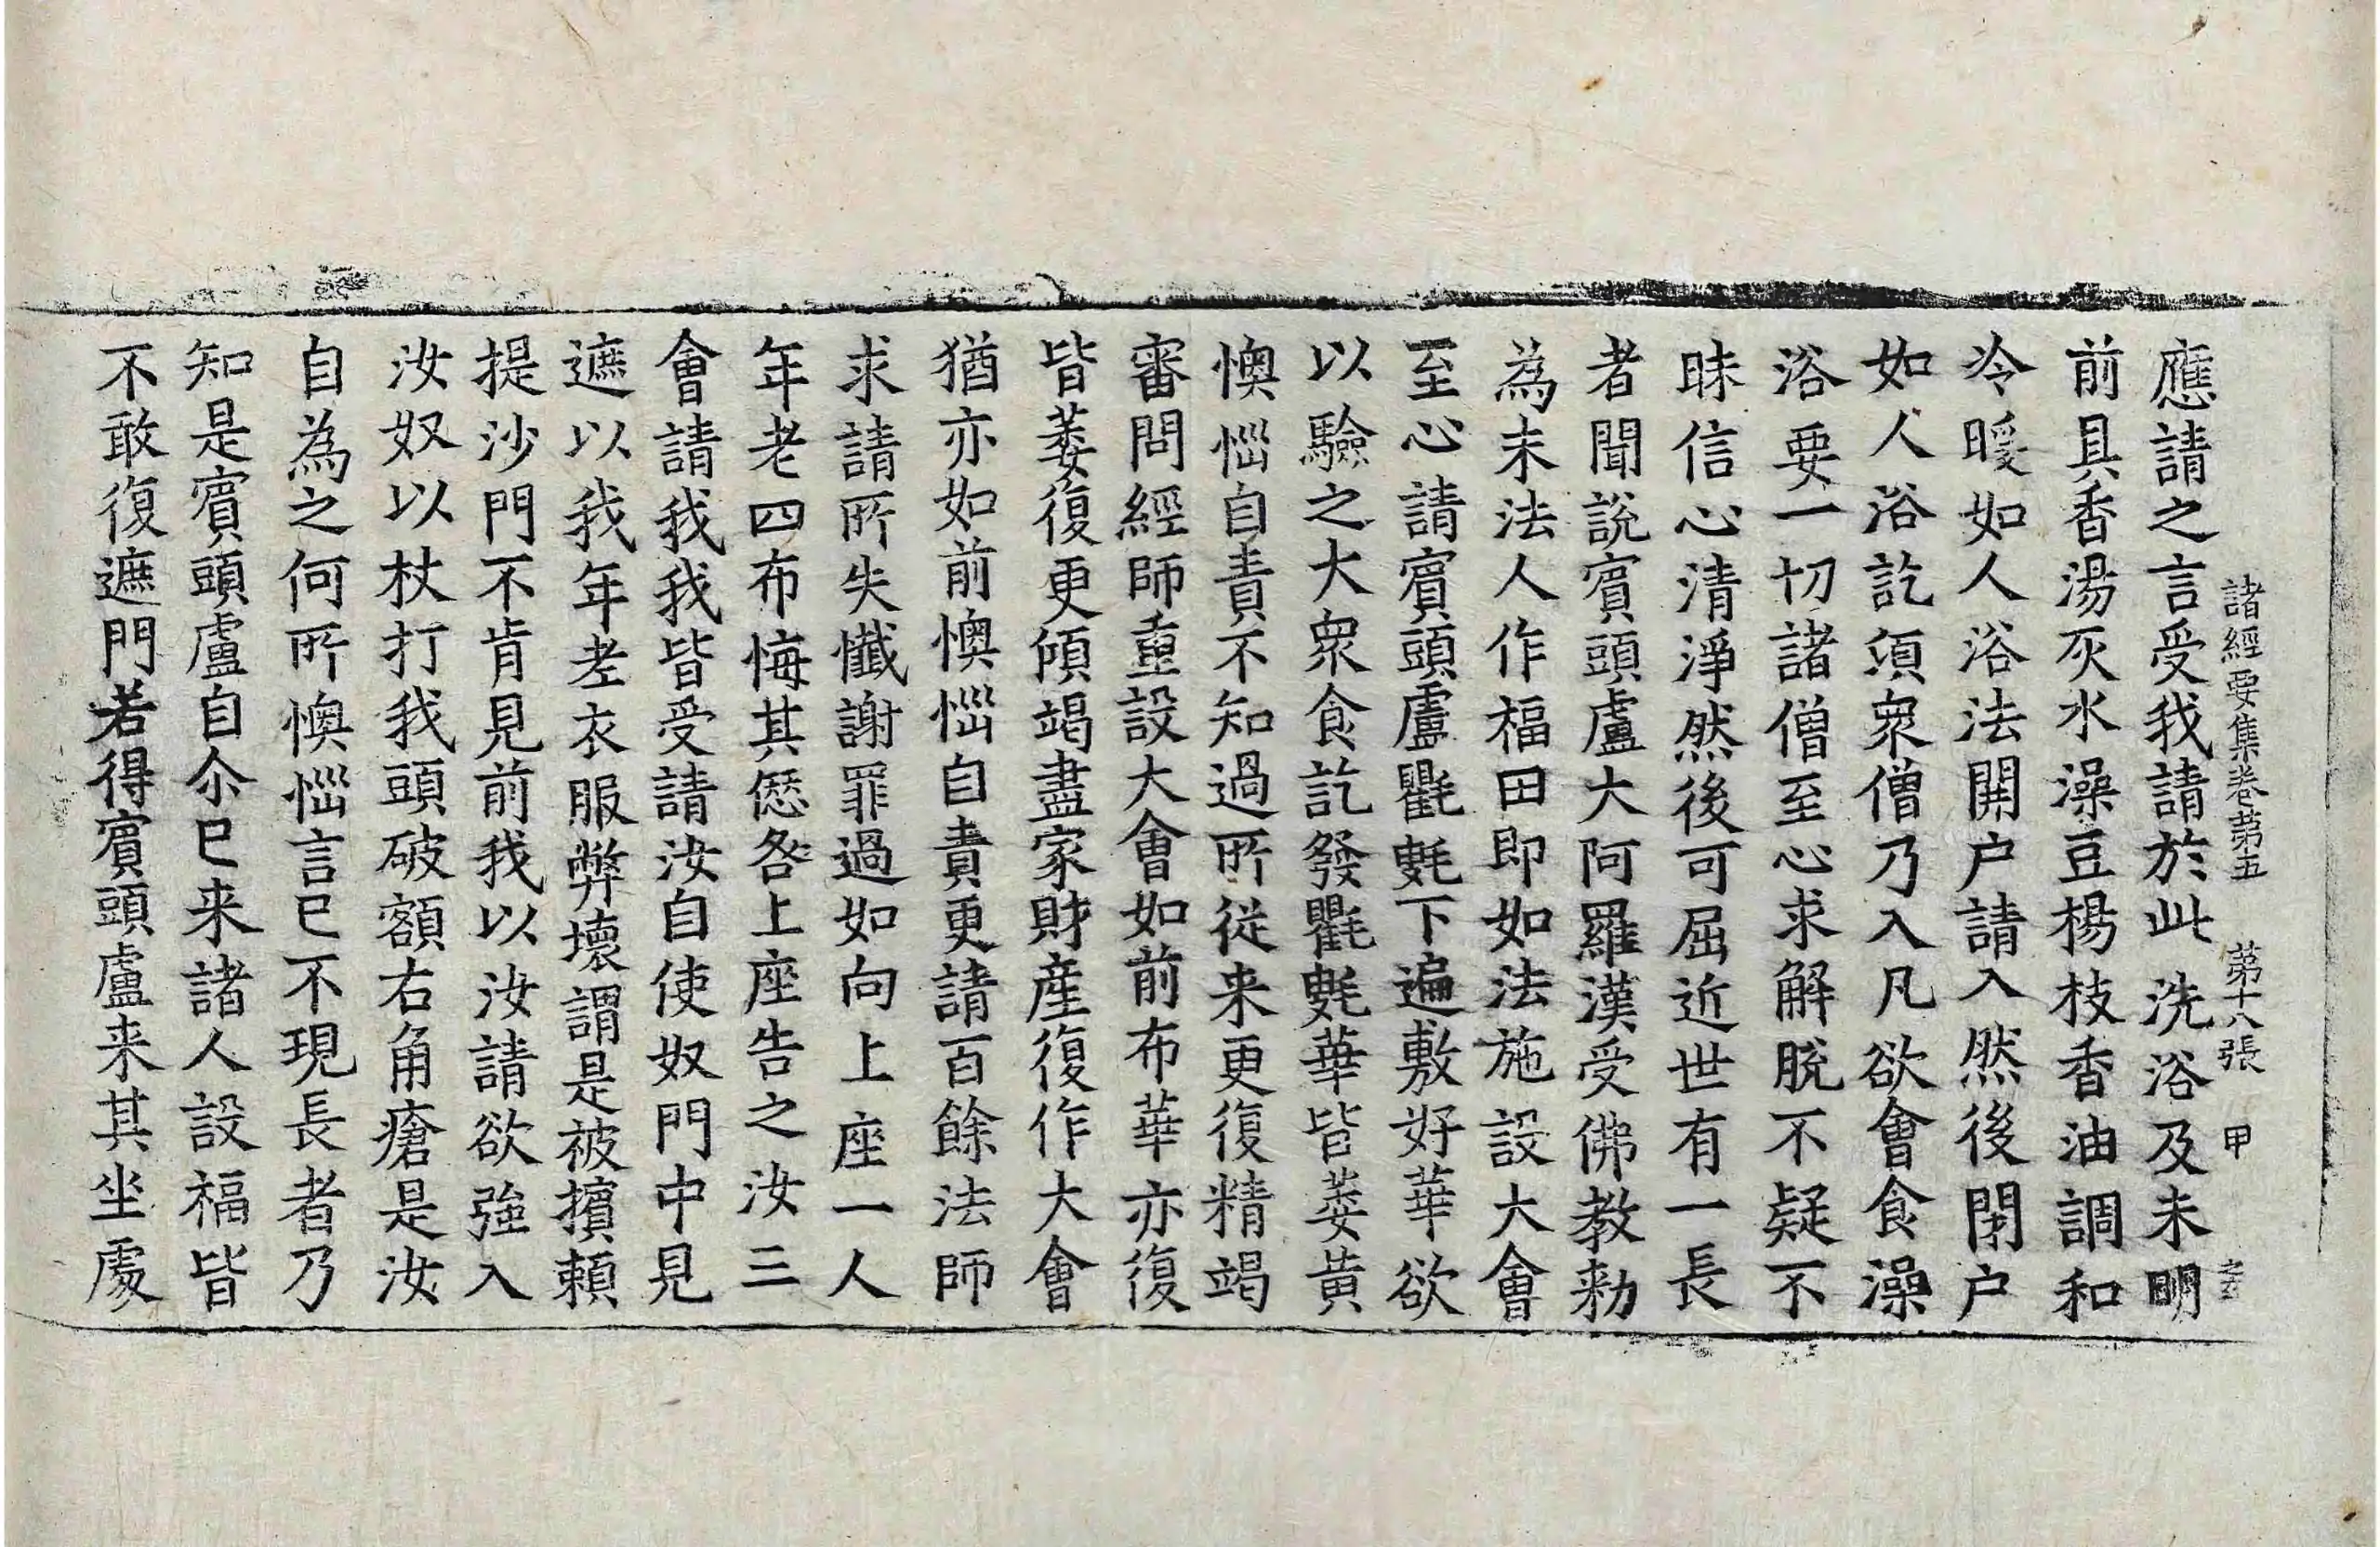 諸經要集卷第五　第十八張　甲
應請之言受我請於此洗浴及未明
前具香湯灰水澡豆楊枝香油調和
冷暖如人浴法開户請入然後閉户
如人浴訖湏衆僧乃入凡欲會食澡
浴要一切諸僧至心求解脫不疑不
昧信心清淨然後可屈近世有一長
者聞說賔頭盧大阿羅漢受佛教勑
為末法人作福田即如法施設大會
至心請賔頭盧氍㲣下遍敷好華欲
以驗之大衆食訖發氍㲣華皆萎黄
懊惱自責不知過所従来更復精竭
審問經師重設大會如前布華亦復
皆萎復更傾竭盡家財産復作大會
猶亦如前懊惱自責更請百餘法師
求請所失懺謝罪過如向上座一人
年老四布悔其愆咎上座告之汝三
會請我我皆受請汝自使奴門中見
遮以我年老衣服弊壊謂是被擯頼
提沙門不肯見前我以汝請欲強入
汝奴以杖打我頭破額右角瘡是汝
自為之何所懊惱言已不現長者乃
知是賔頭盧自尒已来諸人設福皆
不敢復遮門若得賔頭盧来其坐處